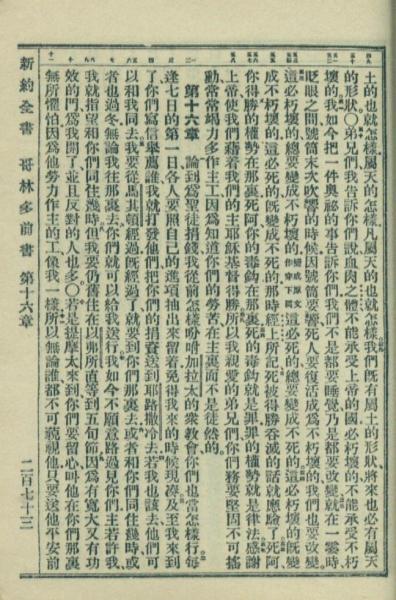 土的也就怎樣屬天的怎樣凡屬天的也就怎樣我們既有屬土的形狀將來也必有屬天
的形狀○弟兄們我告訴你們說血肉之體不能承受上帝的國必朽壞的不能承受不朽
壞的我如今把一件奧祕的事告訴你們我們不是都要睡覺乃是都要改變就在一霎時
眨眼之間號筒末次吹響的時候因號筒要響死人要復活成爲不朽壞的我們也要改變
這必朽壞的總要變成不朽壞的變成原文作穿下同這必死的總要變成不死的這必朽壞的既變
成不朽壞的這必死的既變成不死的那時經上所記死被得勝吞滅的話就應驗了死阿
你得勝的權勢在那裏死阿你的毒鈎在那裏死的毒鈎就是罪罪的權勢就是律法感謝
上帝使我們藉着我們的主耶穌基督得勝所以我親愛的弟兄們你們務要堅固不可搖
動常常竭力多作主工因爲知道你們的勞苦在主裏面不是徒然的
第十六章 論到爲聖徒捐錢我從前怎樣吩咐加拉太的衆教會你們也當怎樣行每
逢七日的第一日各人要照自己的進項抽出來留着免得我來的時候現湊及至我來到
了你們寫信舉薦誰我就打發他們把你們的捐資送到耶路撒冷去若我也該去他們可
以和我同去我要從馬其頓經過既經過了就要到你們那裏去或者和你們同住幾時或
者也過冬無論我往那裏去你們就可以給我送行我如今不願意路過見你們主若許我
我就指望和你們同住幾時但我要仍舊住在以弗所直等到五旬節因爲有寬大又有功
效的門爲我開了並且反對的人也多○若是提摩太來到你們要留心叫他在你們那裏
無所懼怕因爲他勞力作主的工像我一樣所以無論誰都不可藐視他只要送他平安前
新約全書 哥林多前書 第十六章 二百七十三